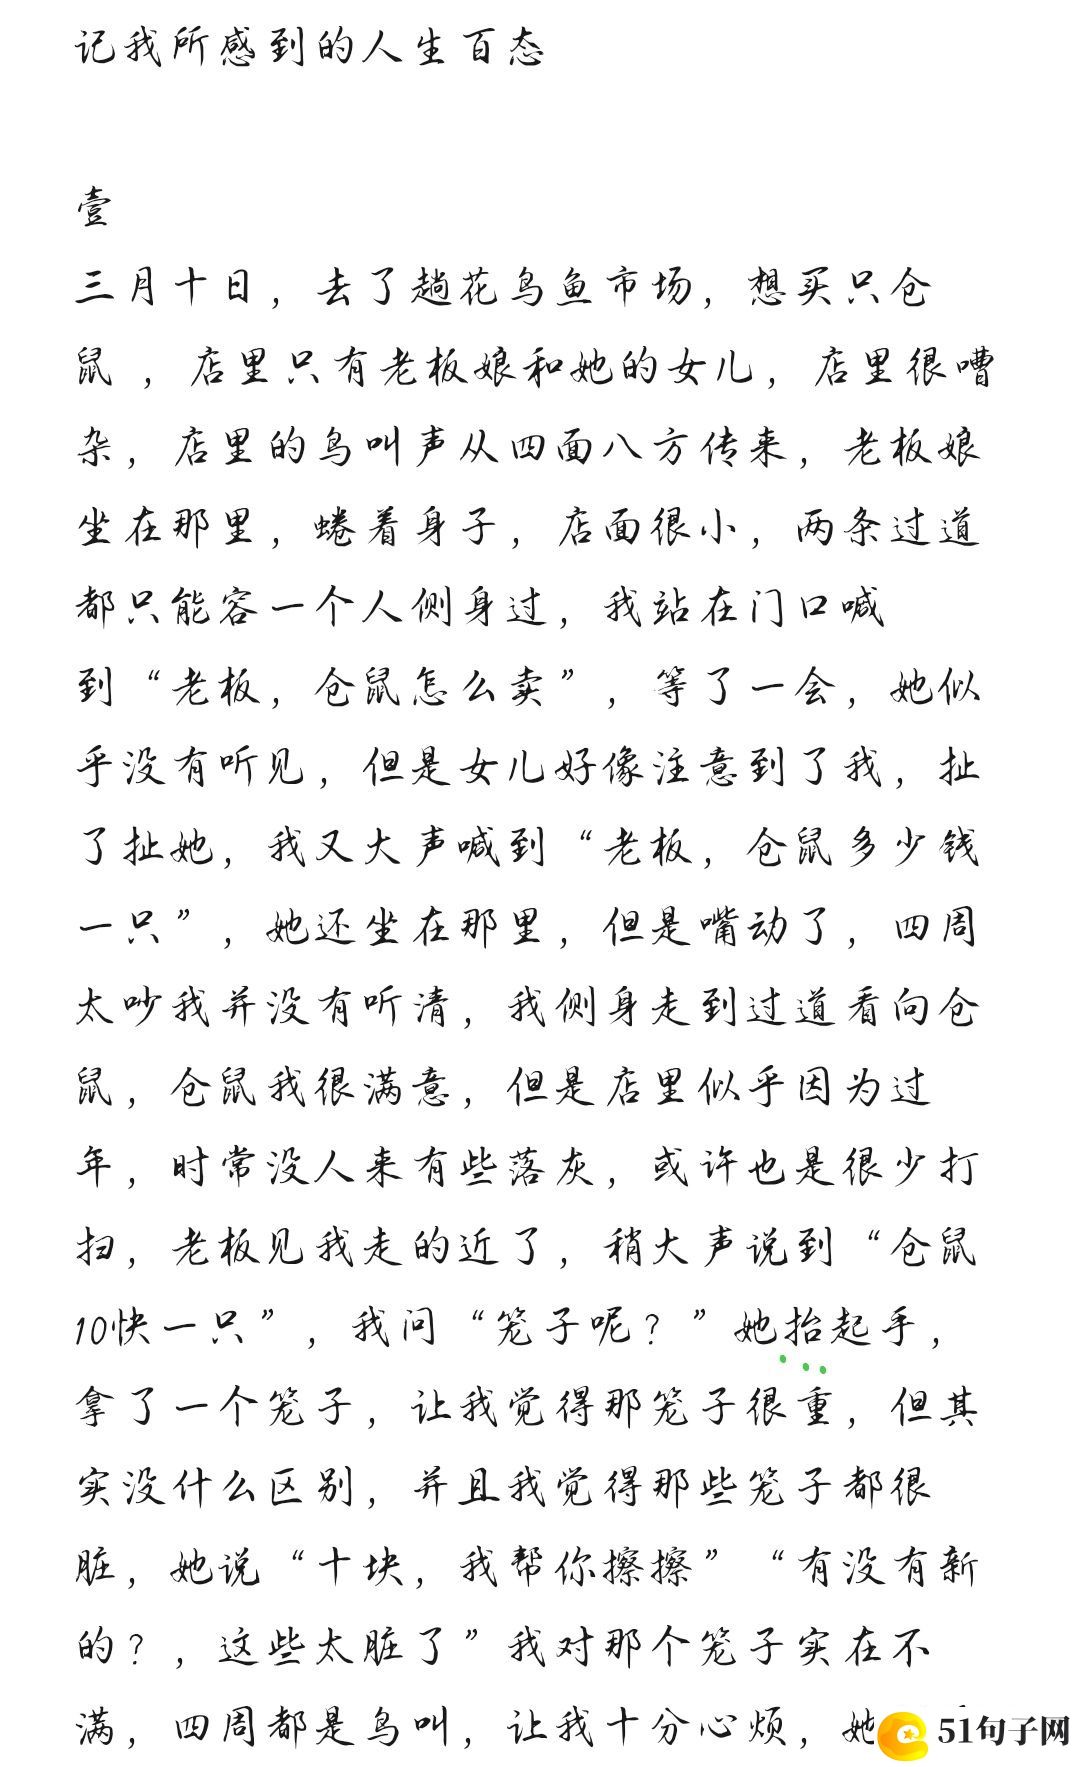 记我所感到的人生百态
壹
三月十日，去了趟花鸟鱼市场，想买只仓
鼠，店里只有老板娘和她的女儿，店里很嘈
杂，店里的鸟叫声从四面八方传来，老板娘
坐在那里，蜷着身子，店面很小，两条过道
都只能容一个人侧身过，我站在门口喊
到“老板，仓鼠怎么卖”，等了一会，她似
乎没有听见，但是女儿好像注意到了我，扯
了扯她，我又大声喊到“老板，仓鼠多少钱
一只”，她还坐在那里，但是嘴动了，四周
太吵我并没有听清，我侧身走到过道看向仓
鼠，仓鼠我很满意，但是店里似乎因为过
年，时常没人来有些落灰，或许也是很少打
扫，老板见我走的近了，稍大声说到“仓鼠
10快一只”，我问“笼子呢？”她抬起手，
拿了一个笼子，让我觉得那笼子很重，但其
实没什么区别，并且我觉得那些笼子都很
脏，她说“十块，我帮你擦擦”“有没有新
的？，这些太脏了”我对那个笼子实在不
满，四周都是鸟叫，让我十分心烦，她
51句子网